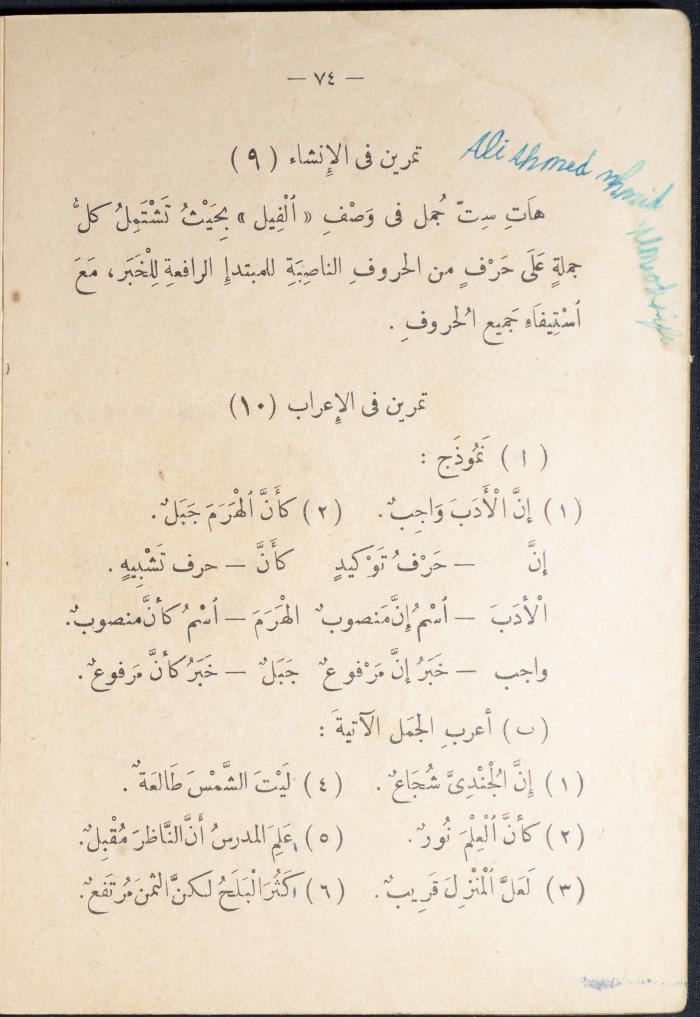 — ٧٤ —
Ali Ahmed
تمرين فى الإِنشاء (٩)
هَاتِ سِتّ جُمل فى وَصْفِ «ٱلْفِيل» بِحَيْثُ تَشْتَمِلُ كلُّ
جملةٍ عَلَى حَرْفٍ من الحروفِ الناصِبَةِ للمبتدإِ الرافعةِ لِلْخَبَر، مَعَ
ٱسْتِيفَاءِ جَمِيع ٱلحروفِ.
تمرين فى الإِعراب (١٠)
(ا) نَمُوذَج :
(١) إِنَّ الْأَدَبَ وَاجِبٌ. (٢) كَأَنَّ ٱلْهَرَمَ جَبَلٌ.
إِنَّ — حَرْفُ تَوْكِيدٍ كَأَنَّ — حرف تَشْبِيهٍ.
الْأَدَبَ — ٱسْمُ إِنَّ مَنصوبٌ الهْرَمَ — ٱسْمُ كَأنَّ منصوبٌ.
واجب — خَبَرُ إِنَّ مَرْفوعٌ جَبَلٌ — خَبَرُ كَأنَّ مَرفوعٌ.
(ب) أَعربِ الجمَل الآتيةَ :
(١) إِنَّ الْجُنْدِىَّ شُجَاعٌ. (٤) لَيْتَ الشَّمْسَ طَالعَةٌ.
(٢) كَأَنَّ ٱلْعِلْمَ نُورٌ. (٥) عَلِمَ المدرسُ أَنَّ النَّاظرَ مُقْبِلٌ.
(٣) لَعَلَّ ٱلْمَنْزِلَ قَرِيبٌ. (٦) كَثُرَ الْبَلَحُ لكنَّ الثمنَ مُرتَفعٌ.